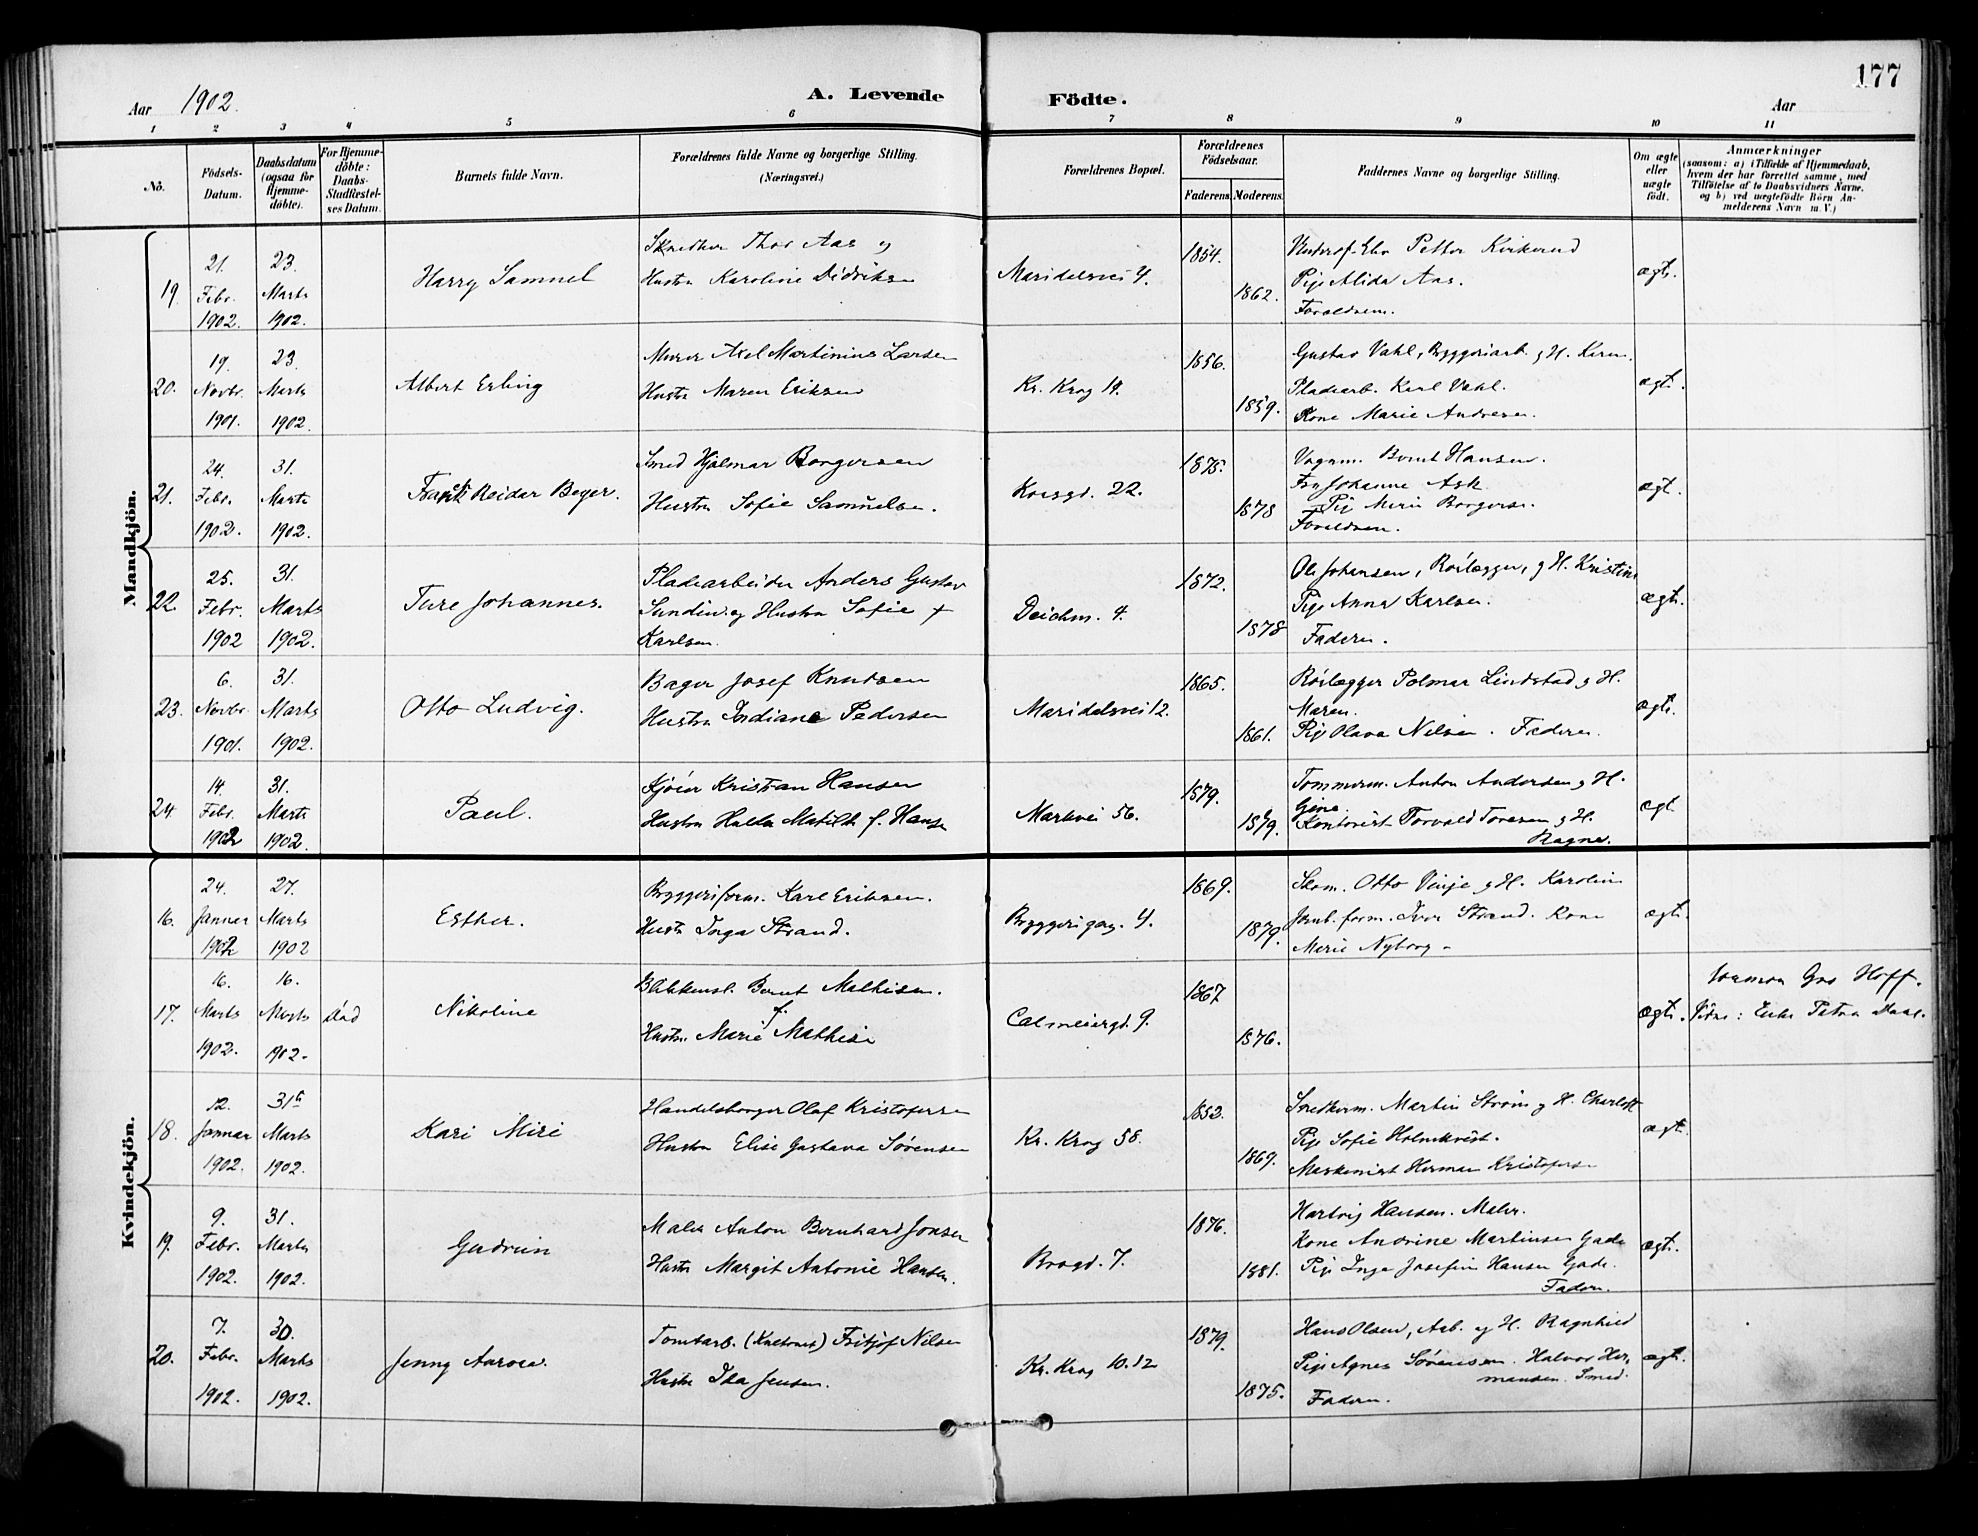 177
Aar 1902. A. Levende Födte. Aar
1 2 3 4 5 6 7 8 9 10 11
No.
Födsels-Datum.
Daabsdatum (ogsaa for Hjemme-döbte).
For Hjemme-döbte: Daabs-Stadfestel-ses Datum.
Barnets fulde Navn.
Forældrenes fulde Navne og borgerlige Stilling.
(Næringsvei.)
Forældrenes Bopæl.
Forældrenes Födselsaar.
Faderens. Moderens.
Faddernes Navne og borgerlige Stilling.
Om ægte eller uægte födt.
Anmærkninger
(saasom: a) i Tilfælde af Hjemmedaab,
hvem der har forrettet samme, med
Tilföielse af to Daabsvidners Navne.
og b) ved uægtefödte Börn An-
melderens Navn m. V.)
Mandkjön.
19. 21. Febr. 1902. 23. Marts 1902.
Harry Samuel
Thor Aas og
Hustru Karoline Didriksen
Maridalsvei 4.
1854. 1862.
Petter Kirkerud
Pige Alida Aas.
Forældrene.
ægte.
20. 19. Novbr. 1901. 23 Marts 1902.
Albert Erling
Murer Axel Martinius Larsen
Hustru Maren Eriksen
Kr. Krog 19.
1856. 1859.
Gustav Vahl, Bryggeriarb. & H. Karen.
Pladearb. Karl Vahl.
Kone Marie Andresen.
ægt.
21. 24. Febr. 1902. 31. Marts 1902.
Frank Reidar Beyer.
Smed Hjalmar Borgersen
Hustru Sofie Samuelsen.
Korsgd. 22.
1875. 1878
Vognm. Bernt Hansen.
Fru Johanne Ask
Pige Marie Borgersen.
Forældrene.
ægt.
22. 25. Febr. 1902 31. Marts 1902.
Ture Johannes.
Pladearbeider Anders Gustav
Sundin og Hustru Sofie
Karlsen.
Deichm. 4.
1872. 1878
Ole Johansen, Rörlægger, & H. Kristine
Pige Anna Karlsen.
Faderen.
ægt.
23. 6. Novbr. 1901. 31. Marts 1902.
Otto Ludvig.
Bager Josef Knudsen
Hustru Indiane Pedersen
Maridalsvei 12.
1865. 1861.
Rörlægger Lindstad & H.
Maren.
Pige Olava Nilsen. Faderen.
ægt.
24. 14. Febr. 1902 31. Marts 1902.
Paul.
Kristian Hansen
Hustru Hulda Matilde f. Hansen
Markvei 56.
1879. 1879.
Tømmerm. Anton Andersen & H.
Gina.
Kontorist Torvald Toresen & H.
Ragna.
ægt
Kvindekjön.
16. 24. Januar 1902 27. Marts 1902
Esther.
Bryggeriform. Karl Eriksen.
Hustru Inga Strand.
Bryggerigang. 4.
1869. 1879.
Skom. Otto Vinje & H. Karoline
Jernb. form. Iver Strand. Kone
Marie Nyborg.
ægt.
17. 16. Marts 1902. 16. Marts 1902.
Død
Nikoline
Bernt Mathisen.
Hustru Marie f. Mathisen
Calmeiergd. 9.
1867 1876.
ægt.
Hoff.
Enke Petra
18. 12. Januar 1902. 31 Marts 1902.
Kari Miri
Handelsborger Olaf Kristofersen
Hustru Elise Gustava Sørensen
Kr. Krog 58.
1853. 1869.
Snedkerm. Martin Strøm & H. Charlotte
Pige Sofie Holmkvist.
Maskinist Herman Kristofersen
ægt.
19. 9. Febr. 1902. 31. Marts 1902.
Gudrun
Maler Anton Bernhard Jonsen
Hustru Margit Antonie Hansen.
Brogd. 7.
1876. 1881.
Hartvig Hansen. Maler.
Kone Andrine Martinsen Gade
Pige Inga Josefine Hansen Gade.
Faderen.
ægt.
20. 7. Febr. 1902. 30. Marts 1902.
Jenny Aurora.
Tomtarb. Fritjof Nilsen
Hustru Ida Jensen.
Kr. Krog 10.12
1879. 1875.
Hans Olsen, Arb. og H. Ragnhild
Pige Agnes Sørensen. Halvor Her-
mansen. Smed.
Faderen.
ægt.